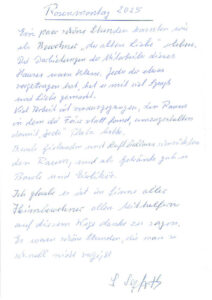 Rosenmontag 2025
Ein paar schöne Stunden konnten wir
als Bewohner, der alten Kirche erleben.
Die Darbietungen der Mitarbeiter dieses
Hauses waren Klasse. Jeder der etwas
vorgetragen hat, hat es mit viel Spaß
und Liebe gemacht.
Viel Arbeit ist vorausgegangen, den Raum
in dem die Feier statt fand, umzugestalten
damit jeder Platz hatte.
Bunte Girlanden und Luftballons
den Raum, und als Getränke gab es
Bowle und
Ich glaube es ist im Sinne aller
Heimbewohner allen Mithelfern
auf diesem Wege danke zu sagen.
Es waren schöne Stunden, die man so
schnell nicht vergißt